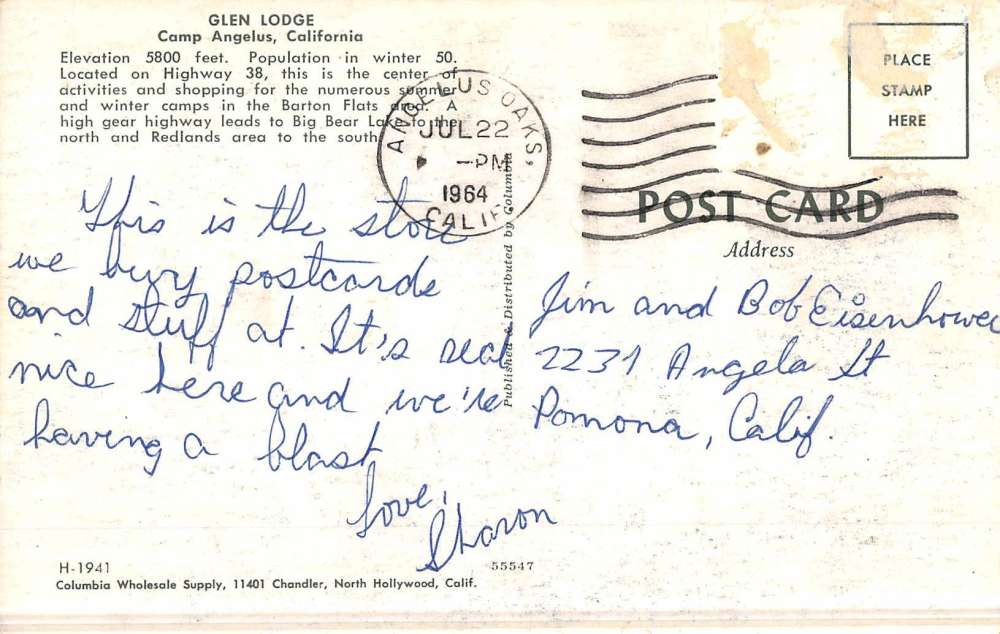 GLEN LODGE
Camp Angelus, California
Elevation 5800 feet. Population in winter 50.
Located on Highway 38, this is the center of
activities and shopping for the numerous summer
and winter camps in the Barton Flats area. A
high gear highway leads to Big Bear Lake to the
north and Redlands area to the south.
ANGELUS OAKS,
JUL 22
-PM
1964
CALIF.
PLACE
STAMP
HERE
POST CARD
Address
This is the store
we buy postcards
and stuff at. It's real
nice here and we're
having a blast
Love,
Sharon
Published & Distributed by Columbia
Jim and Bob Eisenhower
2231 Angela St
Pomona, Calif.
H-1941
55547
Columbia Wholesale Supply, 11401 Chandler, North Hollywood, Calif.